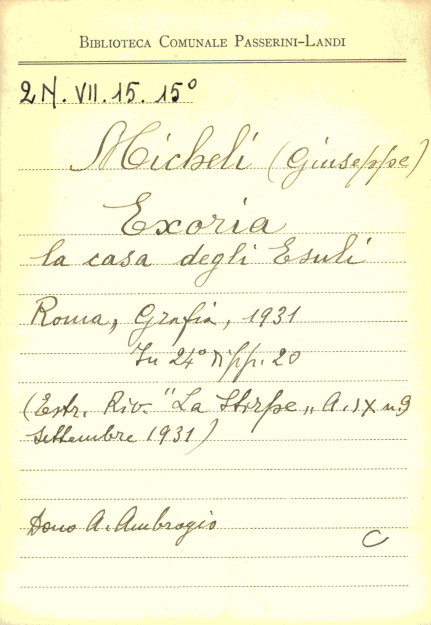 BIBLIOTECA COMUNALE PASSERINI-LANDI
2N. VII. 15. 15°
Micheli (Giuseppe)
Exoria
la casa degli Esuli
Roma, Grafia, 1931
In 24° pp. 20
(Estr. Riv. "La Stirpe" A. IX n. 9
Settembre 1931)
Dono A. Ambrogio
C